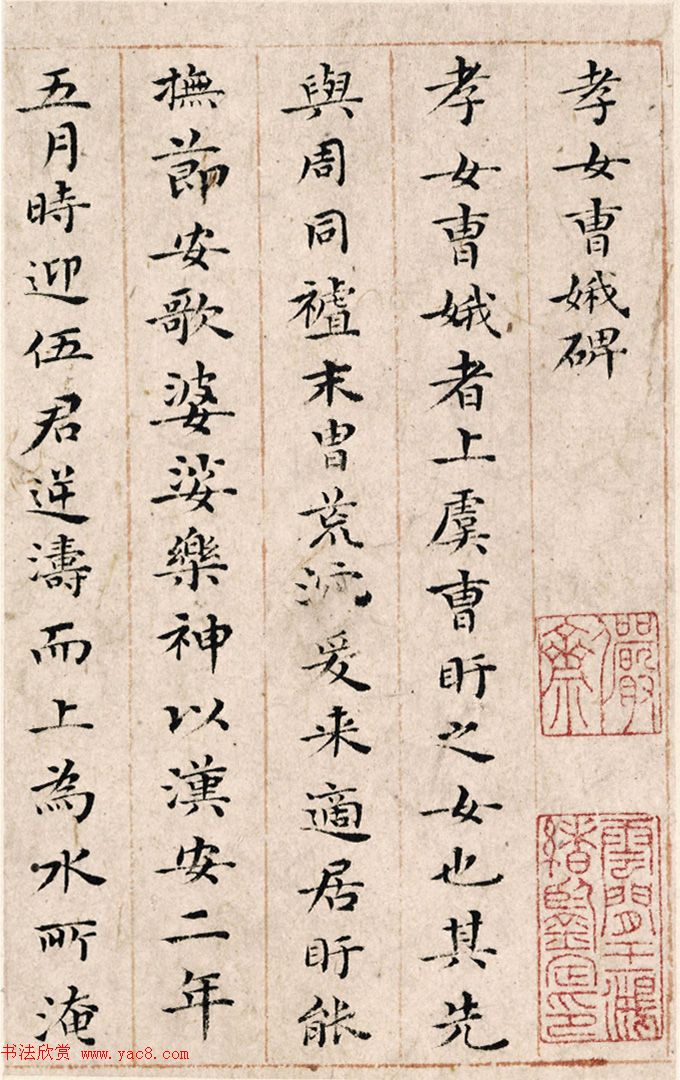 孝女曹娥碑
孝女曹娥者上虞曹盱之女也其先
與周同祖末胄荒沉爰来適居盱能
撫節安歌婆娑樂神以漢安二年
五月時迎伍君逆濤而上為水所淹
儼齋
雲間王鴻緒鑒定印
书法欣赏 www.yac8.com